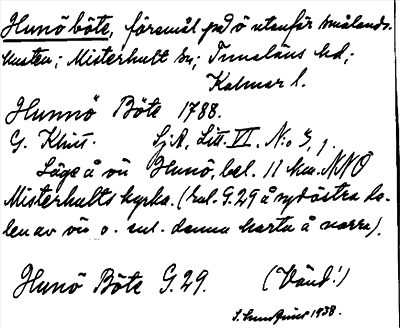 Hunö böte, föremål på ö utanför Smålands-
kusten; Misterhult sn; Tunaläns hd;
Kalmar l.
Hunnö Böte 1788.
G. Klint. Sj.A, Litt. VI. N:o 3, 1.
Läge å ön Hunö, bel. 11 km. NNO
Misterhults kyrka. (Enl. G.29 å sydöstra de-
len av ön o. enl. denna karta å norra).
Hunö Böte G.29. (Vänd!)
1938.